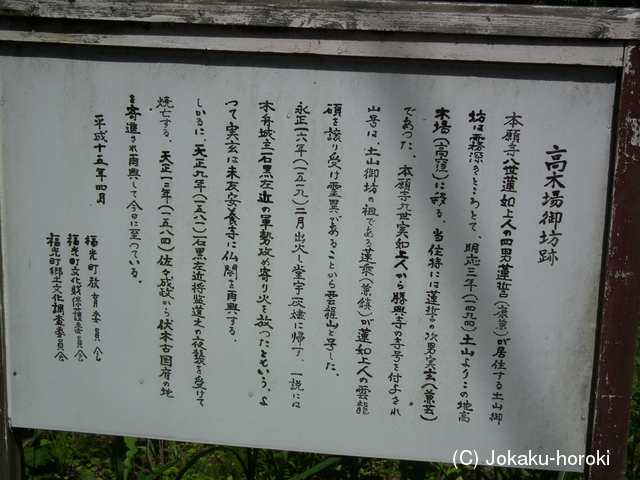 高木場御坊跡
本願寺八世蓮如上人の四男蓮誓(康兼)が居住する土山御
坊は霧深きところとて、明応三年(一四九四)土山よりこの地高
木場(高窪)に移る。当住持には蓮誓の次男実玄(兼芸)
であった。本願寺九世実如上人から勝興寺の寺号を付与され
山号は、土山御坊の祖である蓮乗(兼鎮)が蓮如上人の雲龍
硯を譲り受け霊異があることから雲龍山と号した。
永正一六年(一五一九)二月出火し堂宇灰燼に帰す。一説には
木舟城主石黒左近の軍勢攻め寄り火を放ったという。よ
って実玄は末友安養寺に仏閣を再興する。
しかるに、天正九年(一五八一)石黒左近将監道之の夜襲を受けて
焼亡する。天正一二年(一五八四)佐々成政から伏木古国府の地
を寄進され再興して今日に至っている。
平成十五年四月
福光町教育委員会
福光町文化財保護委員会
福光町郷土文化調査委員会
(C) Jokaku-horoki